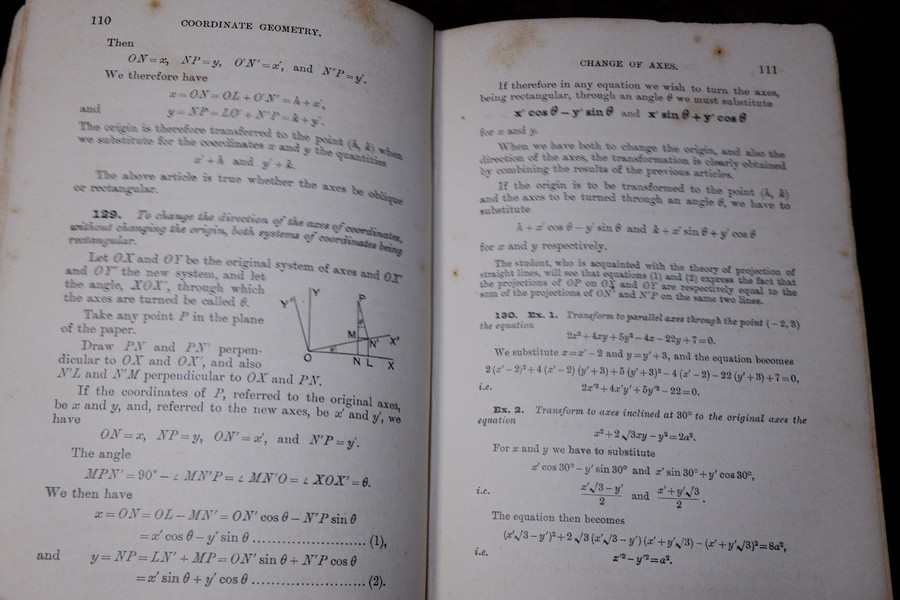 110
COORDINATE GEOMETRY.
Then
ON = x, NP = y, O'N' = x', and N'P = y'.
We therefore have
x = ON = OL + O'N' = h + x',
and
y = NP = LO' + N'P = k + y'.
The origin is therefore transferred to the point (h, k) when
we substitute for the coordinates x and y the quantities
x' + h and y' + k.
The above article is true whether the axes be oblique
or rectangular.
129. To change the direction of the axes of coordinates,
without changing the origin, both systems of coordinates being
rectangular.
Let OX and OY be the original system of axes and OX'
and OY' the new system, and let
the angle, XOX', through which
the axes are turned be called θ.
Take any point P in the plane
of the paper.
Draw PN and PN' perpen-
dicular to OX and OX', and also
N'L and N'M perpendicular to OX and PN.
Y'
Y
P
M
N'
X'
O
θ
N L
X
If the coordinates of P, referred to the original axes,
be x and y, and, referred to the new axes, be x' and y', we
have
ON = x, NP = y, ON' = x', and N'P = y'.
The angle
MPN' = 90° − ∠ MN'P = ∠ MN'O = ∠ XOX' = θ.
We then have
x = ON = OL − MN' = ON' cos θ − N'P sin θ
= x' cos θ − y' sin θ ........................(1),
and
y = NP = LN' + MP = ON' sin θ + N'P cos θ
= x' sin θ + y' cos θ ........................(2).
CHANGE OF AXES.
111
If therefore in any equation we wish to turn the axes,
being rectangular, through an angle θ we must substitute
x' cos θ − y' sin θ and x' sin θ + y' cos θ
for x and y.
When we have both to change the origin, and also the
direction of the axes, the transformation is clearly obtained
by combining the results of the previous articles.
If the origin is to be transformed to the point (h, k)
and the axes to be turned through an angle θ, we have to
substitute
h + x' cos θ − y' sin θ and k + x' sin θ + y' cos θ
for x and y respectively.
The student, who is acquainted with the theory of projection of
straight lines, will see that equations (1) and (2) express the fact that
the projections of OP on OX and OY are respectively equal to the
sum of the projections of ON' and N'P on the same two lines.
130. Ex. 1. Transform to parallel axes through the point (−2, 3)
the equation
2x² + 4xy + 5y² − 4x − 22y + 7 = 0.
We substitute x = x' − 2 and y = y' + 3, and the equation becomes
2 (x' − 2)² + 4 (x' − 2) (y' + 3) + 5 (y' + 3)² − 4 (x' − 2) − 22 (y' + 3) + 7 = 0,
i.e. 2x'² + 4x'y' + 5y'² − 22 = 0.
Ex. 2. Transform to axes inclined at 30° to the original axes the
equation
x² + 2√3xy − y² = 2a².
For x and y we have to substitute
x' cos 30° − y' sin 30° and x' sin 30° + y' cos 30°,
i.e. (x'√3 − y')/2 and (x' + y'√3)/2.
The equation then becomes
(x'√3 − y')² + 2√3 (x'√3 − y') (x' + y'√3) − (x' + y'√3)² = 8a²,
i.e. x'² − y'² = a².